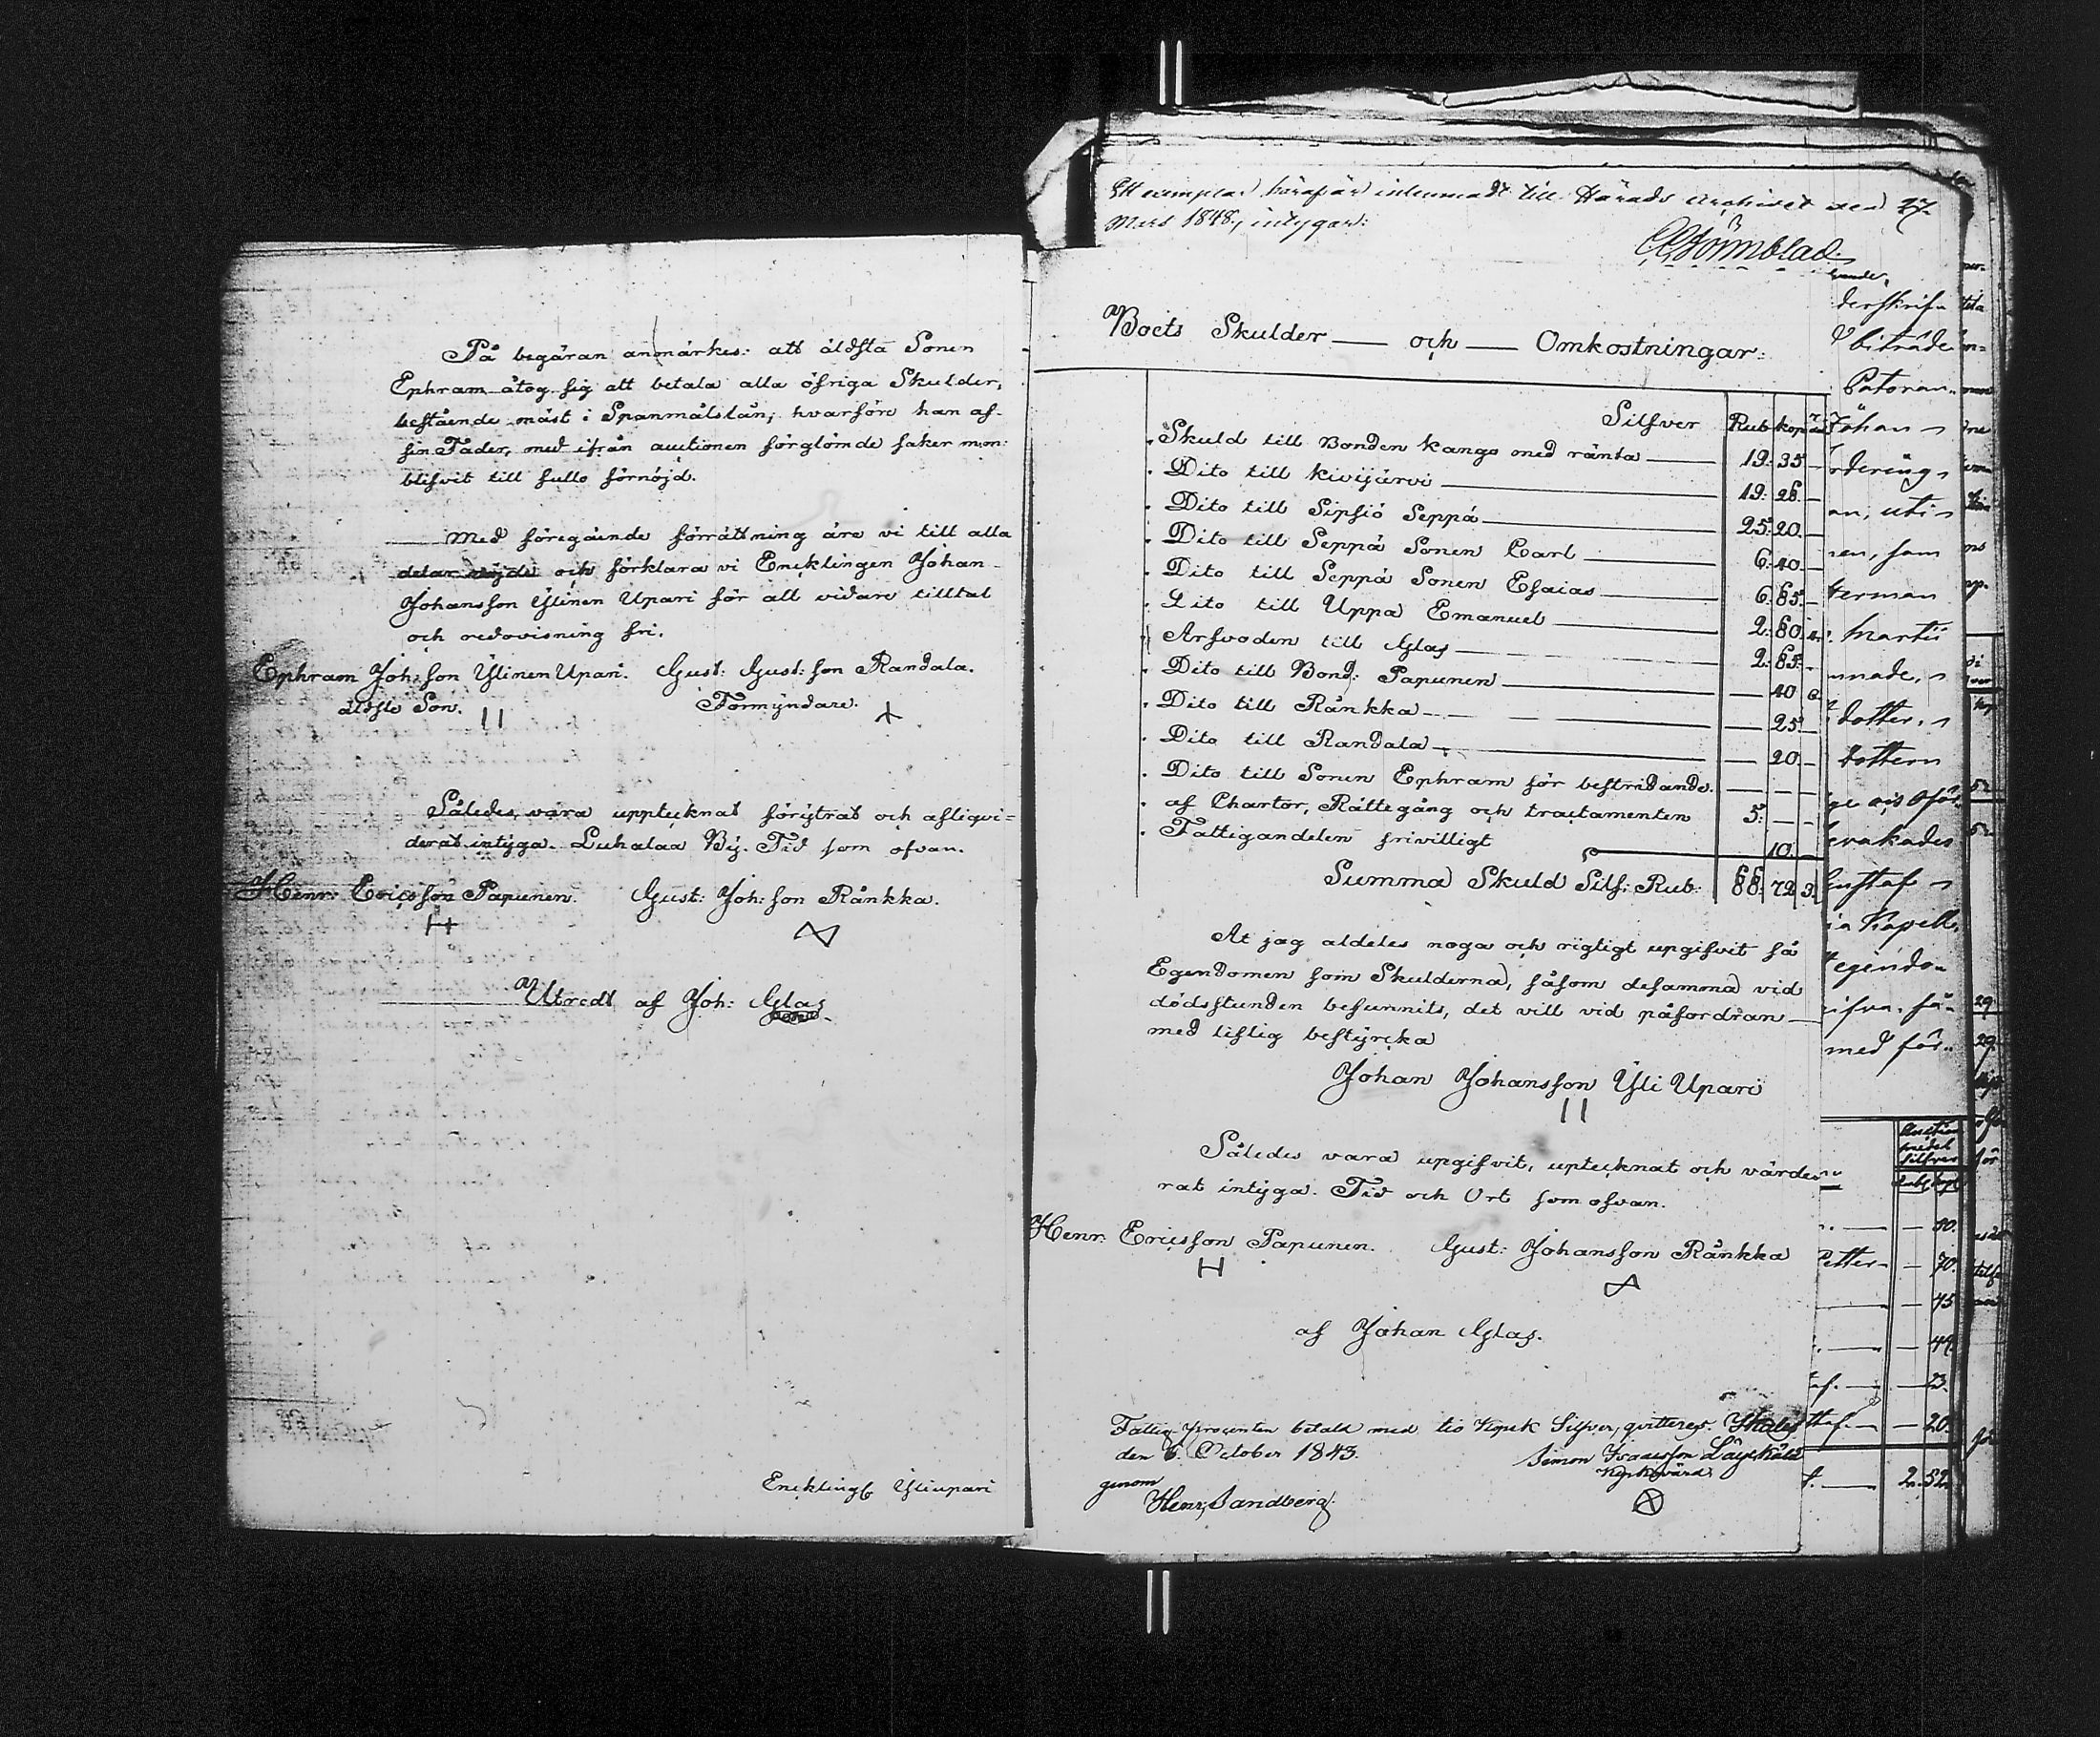 På begäran anmärkes: att äldsta Sonen
Ephram åtog sig att betala alla öfriga Skulder,
bestående mäst i Spanmålslån; hvarföre han af
sin Fader, med ifrån auctionen förglömde saker
blifvit till fullo förnöjd.
Med föregående förrättning äre vi till alla
delar nöjde och förklara vi Encklingen Johan
Johansson Ylinen Upari för all vidare tilltal
och redovisning fri.
Ephram Joh: son Ylinen Upari. Gust: Gust: son Randala.
äldste Son. Förmyndare.
Således vara upptecknat förytrat och afliqvi=
derat intyga. Luhalaa By. Tid som ofvan.
Henr: Ericsson Papunen. Gust: Joh: son Ränkka.
H
Utredt af Joh: Glas
Enckling Yliupari
Ett exemplar häraf är inlemnadt till Härads Archivet den 27.
Mars 1848, intygar:
Boets Skulder — och — Omkostningar:
Silfver Rub kop
Skuld till Bonden Kango med ränta 19. 35 —
Dito till Kivijärvi 19. 28. —
Dito till Sipsiö Seppä 25. 20. —
Dito till Seppä Sonen Carl 6. 40 —
Dito till Seppä Sonen Esaias 6. 85. —
Dito till Uppa Emanuel 2. 80.
Arfvoden till Glas 2. 85. —
Dito till Bond: Papunen — 40
Dito till Ränkka — 25. —
Dito till Randala — 20. —
Dito till Sonen Ephram för bestridande — — —
af Chartor, Rättegång och tractamenten 5. — —
Fattigandelen frivilligt 10. —
Summa Skuld Silf: Rub: 88. 72
At jag aldeles noga och rigtigt upgifvit så
Egendomen som Skulderna, såsom desamma vid
dödsstunden befunnits, det vill vid påfordran
med liflig bestyrcka
Johan Johansson Yli Upari
Således vara upgifvit, uptecknat och värde
rat intyga. Tid och Ort som ofvan.
Henr: Ericsson Papunen. Gust: Johansson Ränkka
H
af Johan Glas.
Fattig procenten betald med tio Kopek Silfver, qvitteras.
den 6. October 1843. Simon
genom
Henr. Sandberg.
derskrif-
biträde
Johan
rdering
an, uti
terman
Martti
dotter.
dottern
evakades
Gustaf
Kapell
Egendo-
med för-
80.
Petter — 70.
75
49
23.
20.
2. 52